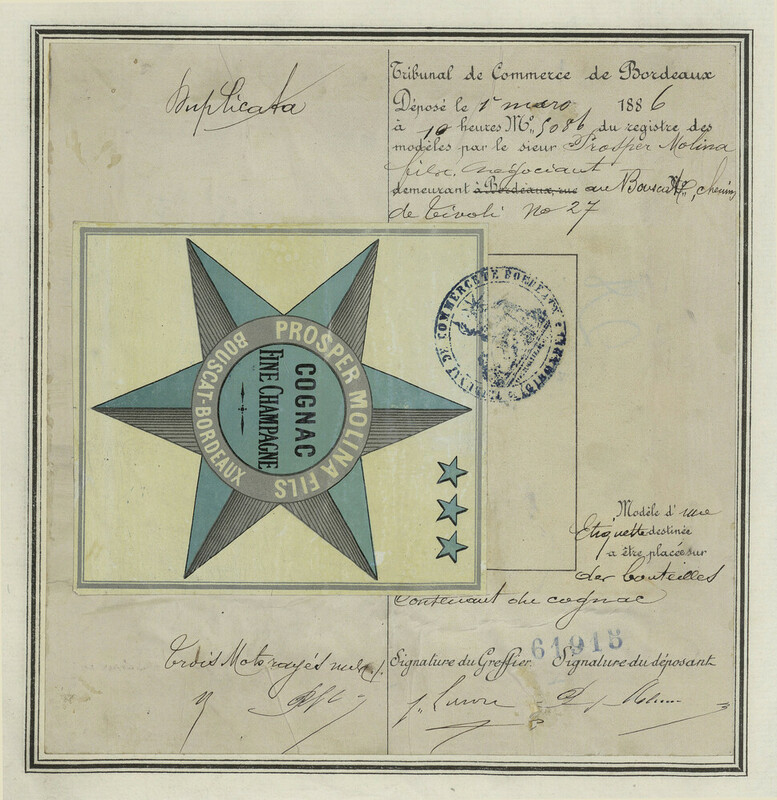 Duplicata
Tribunal de Commerce de Bordeaux
Déposé le 1er mars 1886
à 10 heures No 5086 du registre des
modèles par le sieur Prosper Molina
fils, négociant
demeurant à Bordeaux, rue au Bouscat, chemin
de Tivoli No 27
PROSPER MOLINA FILS
BOUSCAT-BORDEAUX
COGNAC
FINE CHAMPAGNE
TRIBUNAL DE COMMERCE DE BORDEAUX
Modèle d'une
Etiquette destinée
a être placée sur
des bouteilles
Contenant du cognac
61918
Trois Mots rayés nuls
Signature du Greffier. Signature du déposant